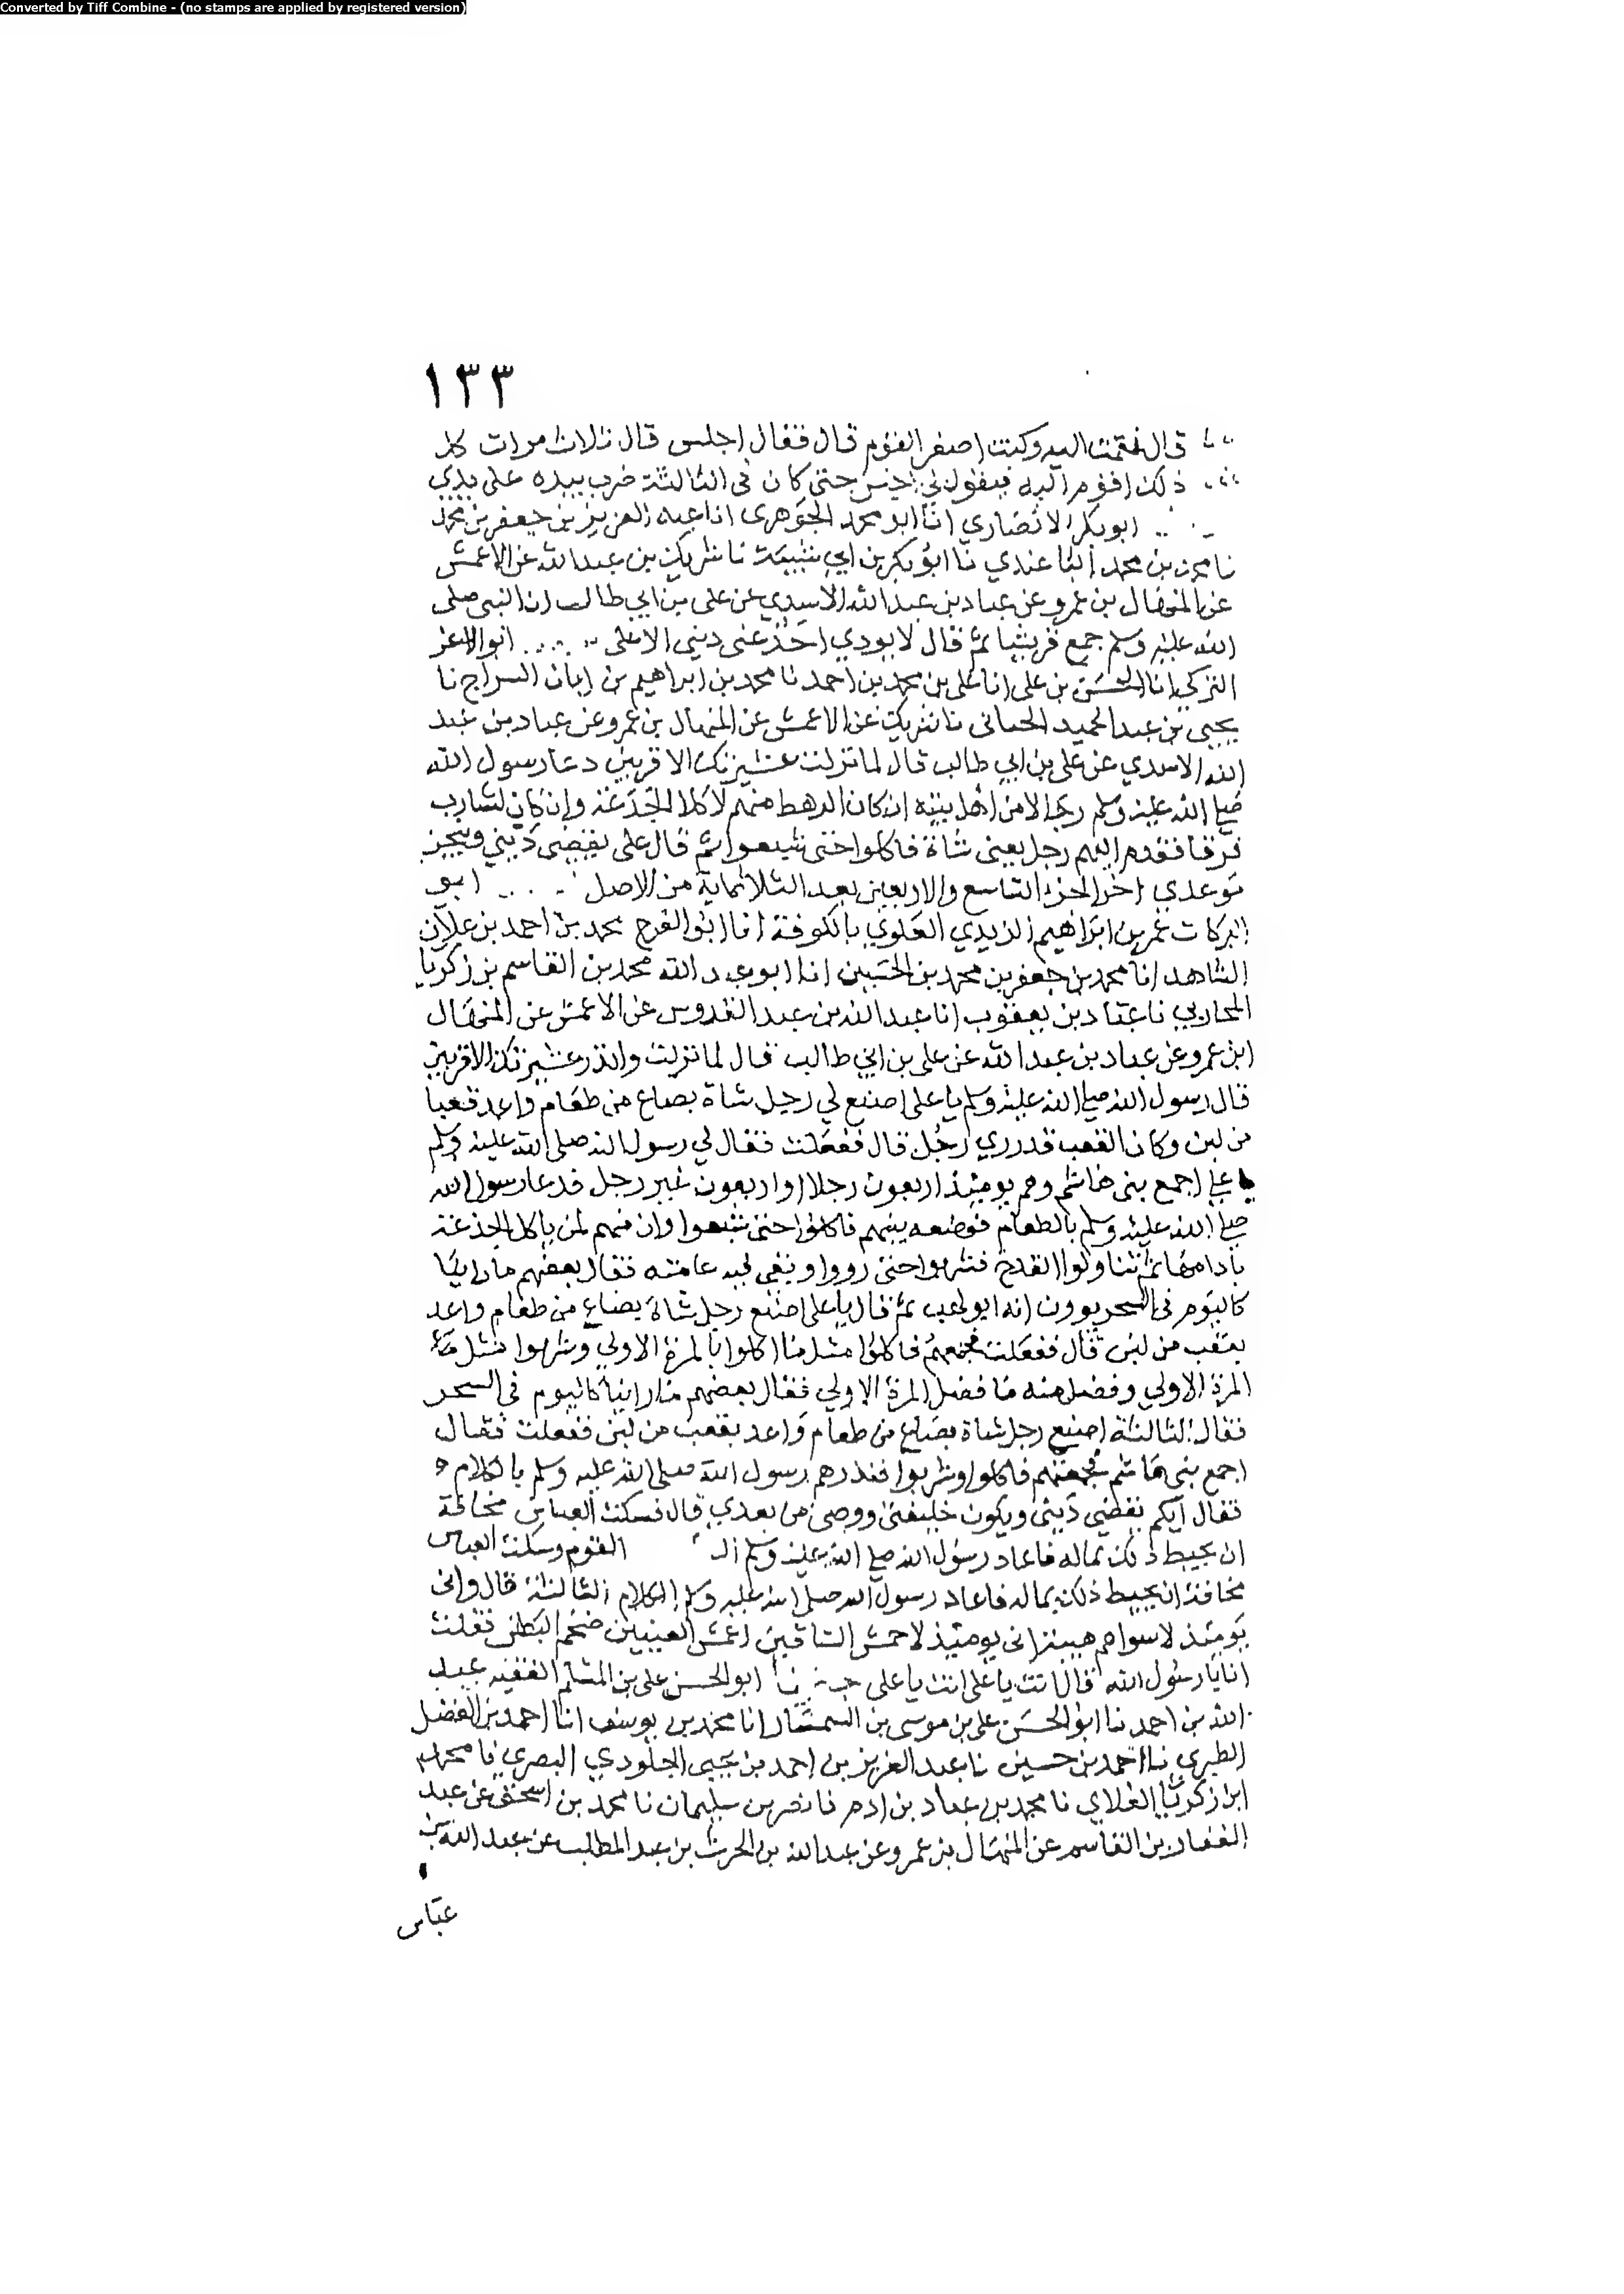 Converted by Tiff Combine - (no stamps are applied by registered version)
١٣٣
قال فقمت اليه وكنت اصغر القوم قال فقال اجلس قال ثلاث مرات كل
ذلك اقوم اليه فيقول لي اجلس حتى كان في الثالثة ضرب بيده على يدي
ابو بكر الانصاري انا ابو محمد الجوهرى انا عبد العزيز بن جعفر بن محمد
نا محمد بن محمد الباغندي نا ابو بكر بن ابي شيبة نا شريك بن عبد الله عن الاعمش
عن المنهال بن عمرو عن عباد بن عبد الله الاسدي عن على بن ابي طالب ان النبي صلى
الله عليه وسلم جمع قريشا ثم قال لا يودي احد عنى ديني الا على ابو العز
التركي انا الحسن بن على انا على بن محمد بن احمد نا محمد بن ابراهيم بن ابان السراج نا
يحيى بن عبد الحميد الحمانى نا شريك عن الاعمش عن المنهال بن عمرو عن عباد بن عبد
الله الاسدي عن على بن ابي طالب قال لما نزلت عشيرتك الاقربين دعا رسول الله
صلى الله عليه وسلم رجالا من اهل بيته ان كان الرهط منهم لاكلا الجذعة وإن كان لشارب
فرقا فقدم اليهم رجل يعنى شاة فاكلوا حتى شبعوا ثم قال على يقضى ديني وينجز
موعدي اخر الجزء التاسع والاربعين بعد الثلاثماية من الاصل ابو
البركات عمر بن ابراهيم الزيدي العلوي بالكوفة انا ابو الفرج محمد بن احمد بن علان
الشاهد انا محمد بن جعفر بن محمد بن الحسين انا ابو عبد الله محمد بن القاسم بن زكريا
المحاربي نا عباد بن يعقوب انا عبد الله بن عبد القدوس عن الاعمش عن المنهال
ابن عمرو عن عباد بن عبد الله عن على بن ابي طالب قال لما نزلت وانذر عشيرتك الاقربين
قال رسول الله صلى الله عليه وسلم يا على اصنع لي رجل شاة بصاع من طعام واعد قعبا
من لبن وكان القعب قدر ري رجل قال ففعلت فقال لي رسول الله صلى الله عليه وسلم
يا على اجمع بنى هاشم وهم يوميذ اربعون رجلا او اربعون غير رجل فدعا رسول الله
صلى الله عليه وسلم بالطعام فوضعه بينهم فاكلوا حتى شبعوا وان منهم لمن ياكل الجذعة
بادامها ثم تناولوا القدح فشربوا حتى رووا وبقى فيه عامته فقال بعضهم ما راينا
كاليوم في السحر يرون انه ابو لهب ثم قال يا على اصنع رجل شاة بصاع من طعام واعد
بقعب من لبن قال ففعلت فجمعتهم فاكلوا مثل ما اكلوا بالمرة الاولي وشربوا مثل
المرة الاولي وفضل منه ما فضل المرة الاولي فقال بعضهم ما راينا كاليوم في السحر
فقال الثالثة اصنع رجل شاة بصاع من طعام واعد بقعب من لبن ففعلت فقال
اجمع بنى هاشم فجمعتهم فاكلوا وشربوا فبدرهم رسول الله صلى الله عليه وسلم بالكلام
فقال ايكم يقضي ديني ويكون خليفتى ووصى من بعدي قال فسكت العباس مخافة
ان يحيط ذلك بماله فاعاد رسول الله صلى الله عليه وسلم القوم وسكت العباس
مخافة ان يحيط ذلك بماله فاعاد رسول الله صلى الله عليه وسلم الكلام الثالثة قال وانى
يوميذ لاسواهم هيبة انى يوميذ لاحمش الساقين اعمش العينين ضخم البطن فقلت
انا يا رسول الله قال انت يا على انت يا على ابو الحسن على بن المسلم الفقيه عبد
الله بن احمد نا ابو الحسن على بن موسى بن السمسار انا محمد بن يوسف انا احمد بن الفضل
الطبري نا احمد بن حسين نا عبد العزيز بن احمد بن يحيى الجلودي البصري نا محمد
ابن زكريا الغلابي نا محمد بن عباد بن ادم نا نصر بن سليمان نا محمد بن اسحق عن عبد
الغفار بن القاسم عن المنهال بن عمرو عن عبد الله بن الحرث بن عبد المطلب عن عبد الله بن
عباس